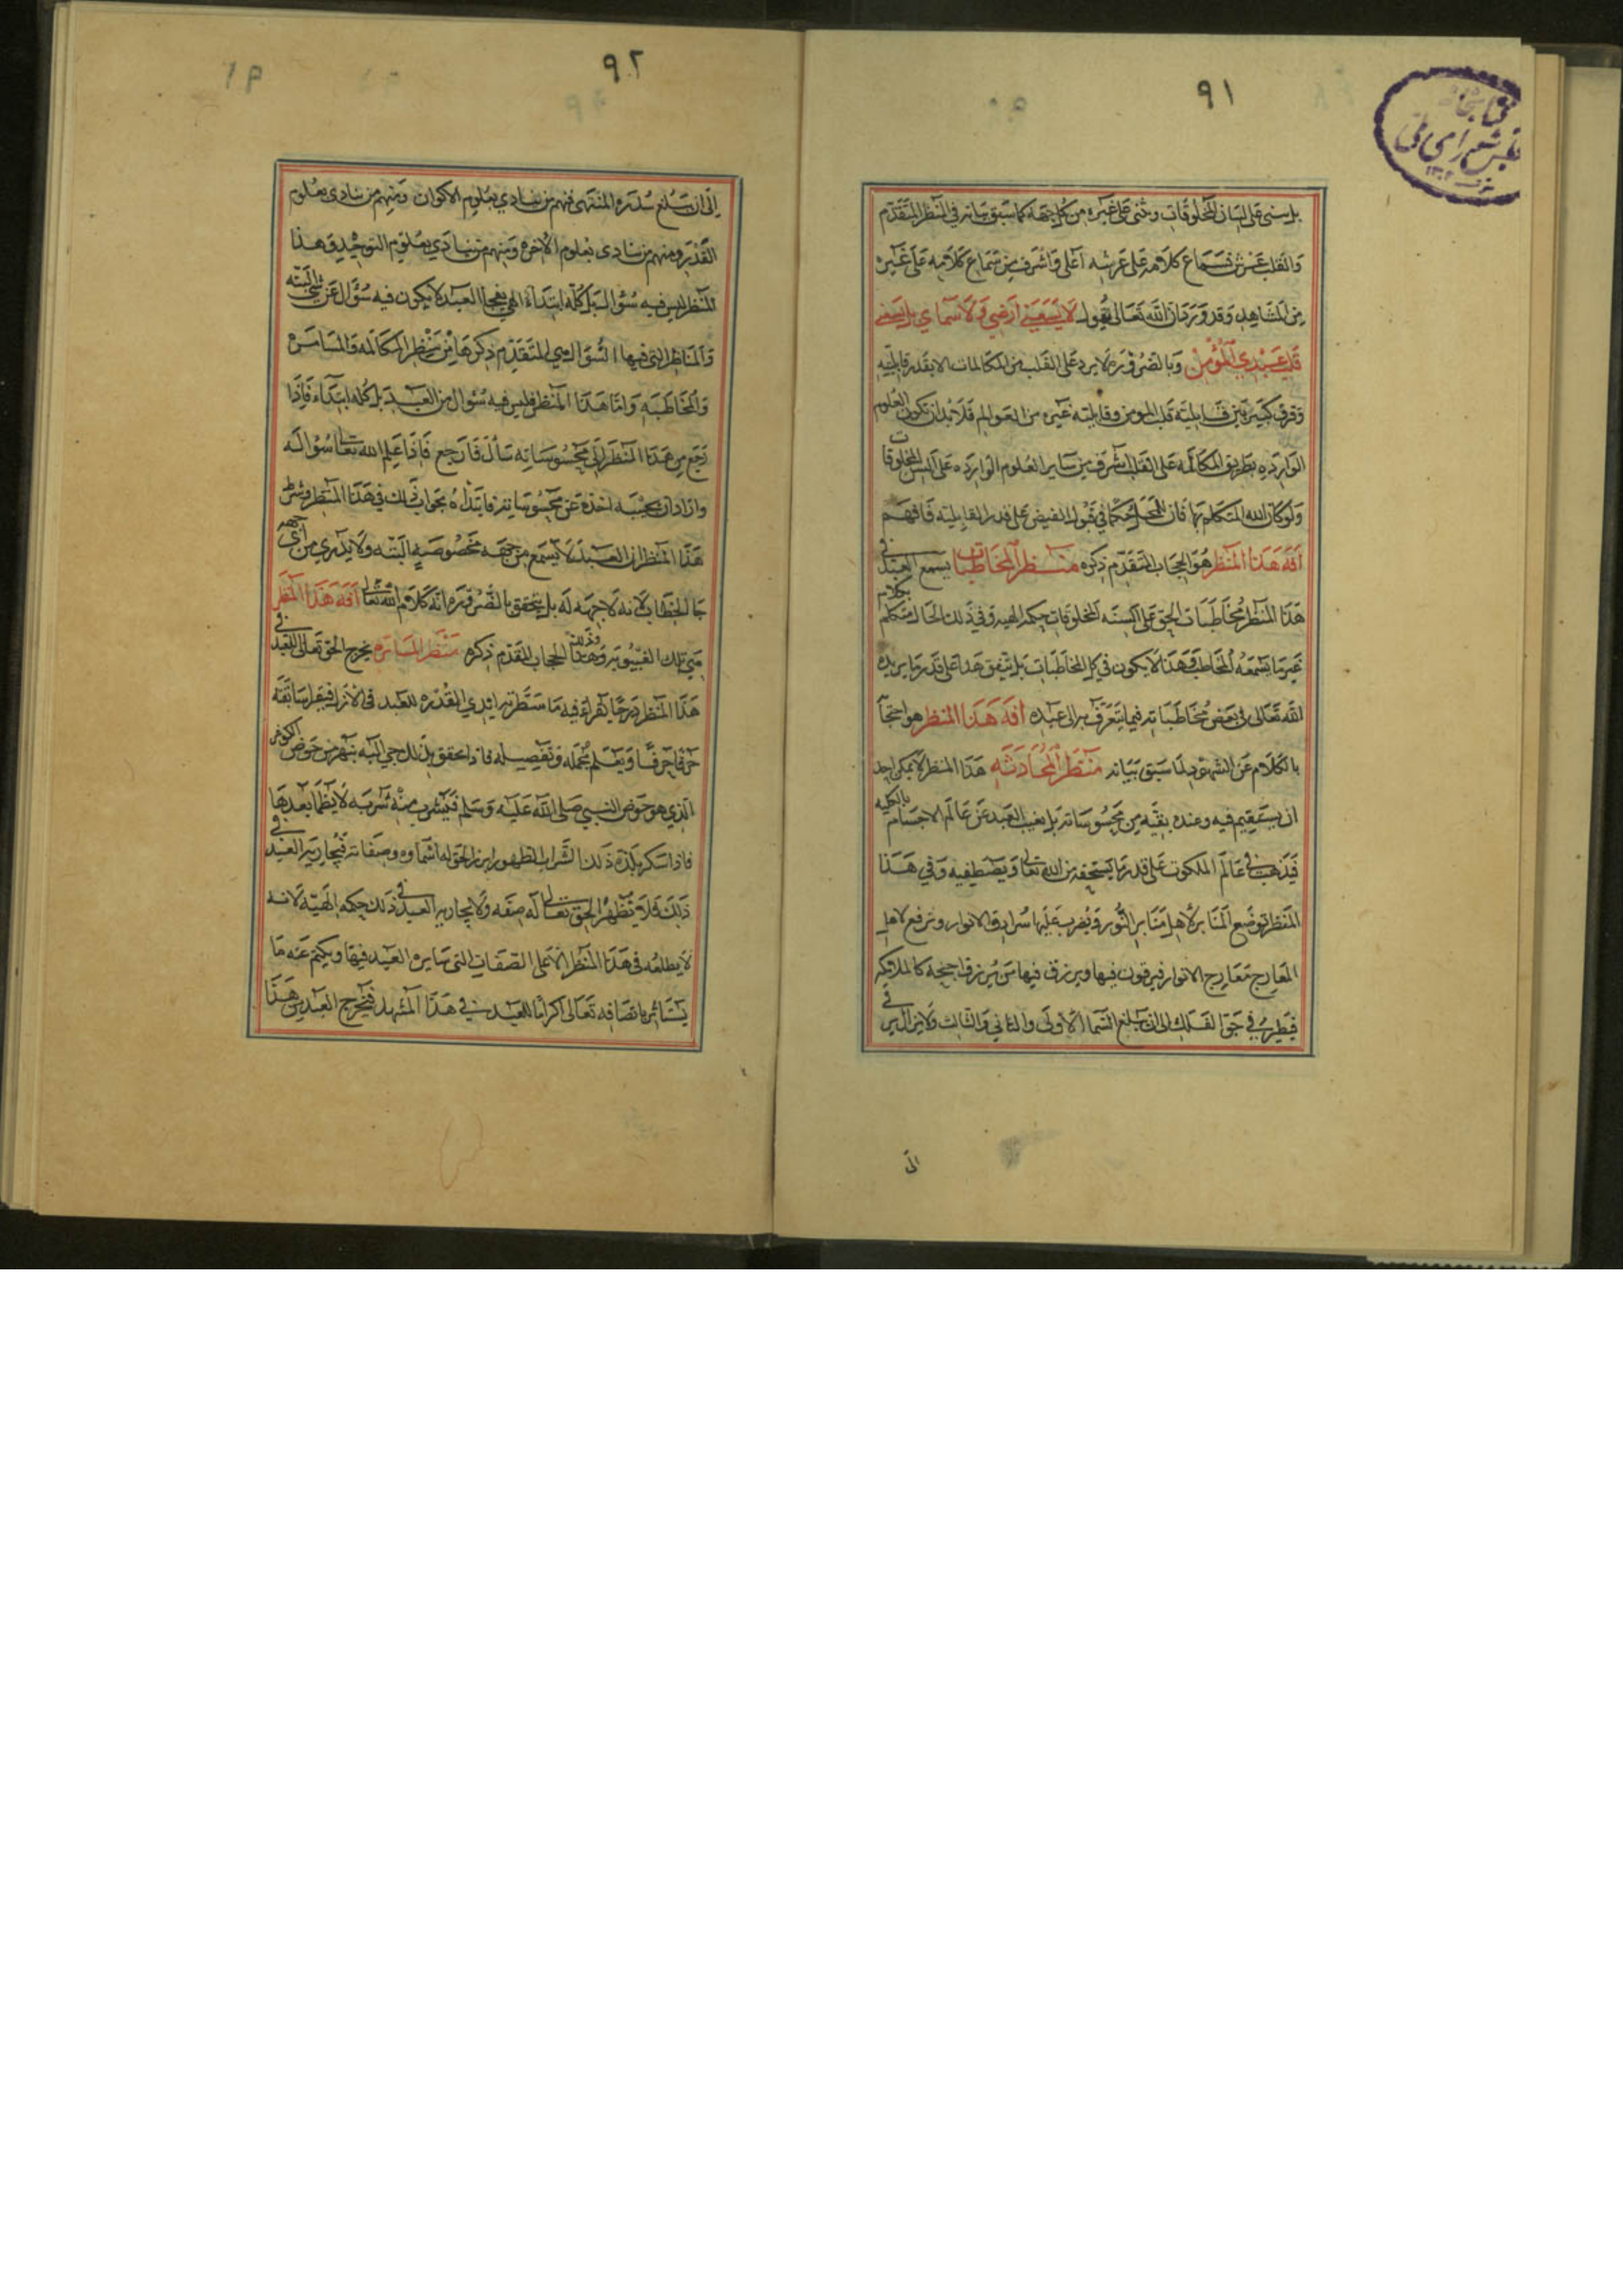 ٩١
بل على لسان المخلوقات وتثنى على غيره من كل جهة كما سبق بيانه في المنظر المتقدم
والقلب عرش فسماع كلامه على عرشه أعلى وأشرف من سماع كلامه على غيره
من المشاهد وقد ورد بأن الله تعالى يقول لا يسعني أرضي ولا سمائي بل يسعني
قلب عبدي المؤمن وبالضرورة لا يرد على القلب من المكالمات لا يقدر قابليته
وفرق كبير بين قابليته قلب المومن وقابليته غيره من العوالم فلا بد ان تكون العلوم
الوارده بطريق المكالمه على القلب اشرف من ساير العلوم الوارده على السن المخلوقات
ولو كان الله المتكلم بها فان للمحل حكما في قبول الفيض على قدر القابليته فافهم
افة هذا المنظر هو الحجاب المتقدم ذكره منظر المخاطبات يسمع العبد في
هذا المنظر مخاطبات الحق على السنه المخلوقات حكمه الهيه وفي ذلك الحال متكلم بكلام
غير ما يسمعه المخاطب وهذا لا يكون في كل المخاطبات بل يتفق هذا على قدر ما يريده
الله تعالى في بعض مخاطباته فيما يتعرف به الى عباده افة هذا المنظر هو احتجاب
بالكلام عن الشهود لما سبق بيانه منظر المحادثه هذا المنظر لا يمكن احد
ان يستقيم فيه وعنده بقيه من محسوساته بل يغيب العبد عن عالم الاجسام بالكليه
فيذهب في عالم الملكوت على قدر ما يستحقه من الله تعالى ويصطفيه وفي هذا
المنظر توضع المنابر لأهل منابر النور ويضرب عليها سرادق الانوار وترفع لاهل
المعارج معارج الانوار فيرقون فيها ويرزق فيها من يرزق اجنحة كالملائكه
فيطير في جو الفلك الى ان يبلغ السما الاولى والثاني والثالث ولا يزال يرقى
الى
٩٢
الى ان يبلغ سدره المنتهى فمنهم من ينادي بعلوم الاكوان ومنهم من ينادى بعلوم
القدر ومنهم من ينادى بعلوم الاخره ومنهم من ينادي بعلوم التوحيد وهذا
المنظر ليس فيه سؤال بل كله ابتداء الهي يفجا العبد لا يكون فيه سؤال عن شي البته
والمناظر التي فيها السؤال هي المتقدم ذكرها من منظر المكالمه والمسامره
والمخاطبه واما هذا المنظر فليس فيه سؤال من العبد بل كله ابتداء فاذا
رجع من هذا المنظر الى محسوساته سأل فارجع فاذا علم الله تعالى سؤاله
واراد ان يجيبه اخذه عن محسوساته فابتداه بجواب ذلك في هذا المنظر وشرط
هذا المنظر ان العبد لا يسمع من جهة مخصوصة البته ولا يدري من أي جهه
جا الخطاب لانه لا جهه له بل يتحقق بالضرورة انه كلام الله تعالى افة هذا المنظر
هي تلك الغيبوبه وهذا الحجاب المتقدم ذكره منظر المسايره يخرج الحق تعالى للعبد في
هذا المنظر درجا يقراء فيه ما سطرته ايدي القدره للعبد في الازل فيقرا سابقته
حرفا حرفا ويعلم مجمله وتفصيله فاذا تحقق بذلك جي اليه بنهر من حوض الكوثر
الذي هو حوض النبي صلى الله عليه وسلم فيشرب منه شربه لا يظما بعدها
فاذا سكر بلذه ذلك الشراب الطهور ابرز الحق له اسماوه وصفاته فيجاريه العبد في
ذلك فلا يظهر الحق تعالى له صفه ولا يجاريه العبد في ذلك حكمه الهيّه لانه
لا يطلعه في هذا المنظر الا على الصفات التي سايره العبد فيها ويكتم عنه ما
يستأثر باتصافه تعالى اكراما للعبد في هذا المشهد فيخرج العبد من هذا